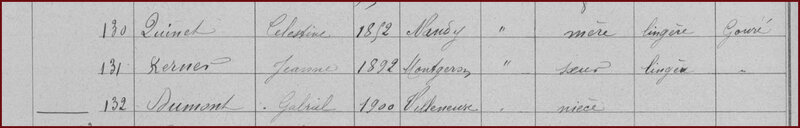 130 Quinet Celestine 1852 Mandy " mère lingère Gouré
131 Kerner Jeanne 1892 Montgeron " sœur lingère "
132 Dumont Gabriel 1900 Villeneuve " nièce